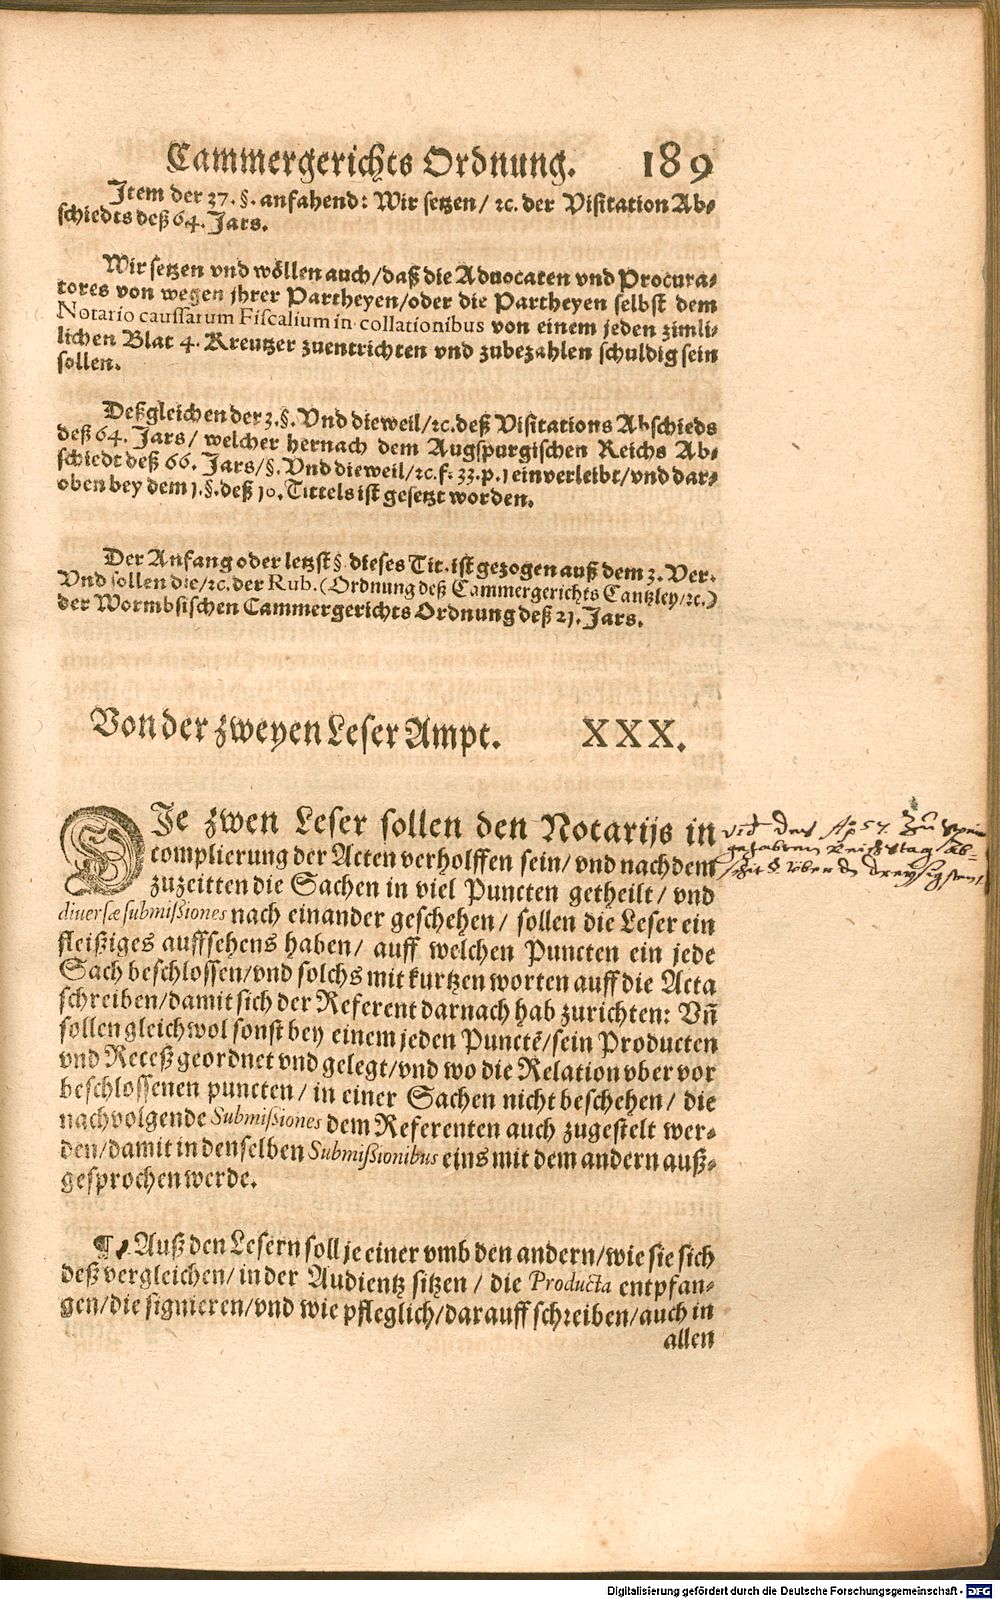 Cammergerichts Ordnung. 189
Item der 37. §. anfahend: Wir setzen / ꝛc. der Visitation Ab⸗
schiedts deß 64. Jars.
Wir setzen vnd wöllen auch / daß die Aduocaten vnd Procura⸗
tores von wegen jhrer Partheyen / oder die Partheyen selbst dem
Notario caussarum Fiscalium in collationibus von einem jeden zimli⸗
lichen Blat 4. Kreutzer zuentrichten vnd zubezahlen schuldig sein
sollen.
Deßgleichen der 3. §. Vnd dieweil / ꝛc. deß Visitations Abschieds
deß 64. Jars / welcher hernach dem Augspurgischen Reichs Ab⸗
schiedt deß 66. Jars / §. Vnd dieweil / ꝛc. f. 33. p. 1 einverleibt / vnd dar⸗
oben bey dem 1. §. deß 10. Tittels ist gesetzt worden.
Der Anfang oder letzst § dieses Tit. ist gezogen auß dem 3. Ver.
Vnd sollen die / ꝛc. der Rub. (Ordnung deß Cammergerichts Cantzley / ꝛc.)
der Wormbsischen Cammergerichts Ordnung deß 21. Jars.
Von der zweyen Leser Ampt. XXX.
DIe zwen Leser sollen den Notarijs in
complierung der Acten verholffen sein / vnd nach dem
zuzeitten die Sachen in viel Puncten getheilt / vnd
diuersæ submißiones nach einander geschehen / sollen die Leser ein
fleißiges auffsehens haben / auff welchen Puncten ein jede
Sach beschlossen / vnd solchs mit kurtzen worten auff die Acta
schreiben / damit sich der Referent darnach hab zurichten: Vñ
sollen gleichwol sonst bey einem jeden Punctẽ / sein Producten
vnd Receß geordnet vnd gelegt / vnd wo die Relation vber vor
beschlossenen puncten / in einer Sachen nicht beschehen / die
nachvolgende Submißiones dem Referenten auch zugestelt wer⸗
den / damit in denselben Submißionibus eins mit dem andern auß⸗
gesprochen werde.
¶ Auß den Lesern soll je einer vmb den andern / wie sie sich
deß vergleichen / in der Audientz sitzen / die Producta entpfan⸗
gen / die signieren / vnd wie pfleglich / darauff schreiben / auch in
allen
57. Zu Speier
gehaltnen Reichstag Ab⸗
dreyssigsten
Digitalisierung gefördert durch die Deutsche Forschungsgemeinschaft - DFG